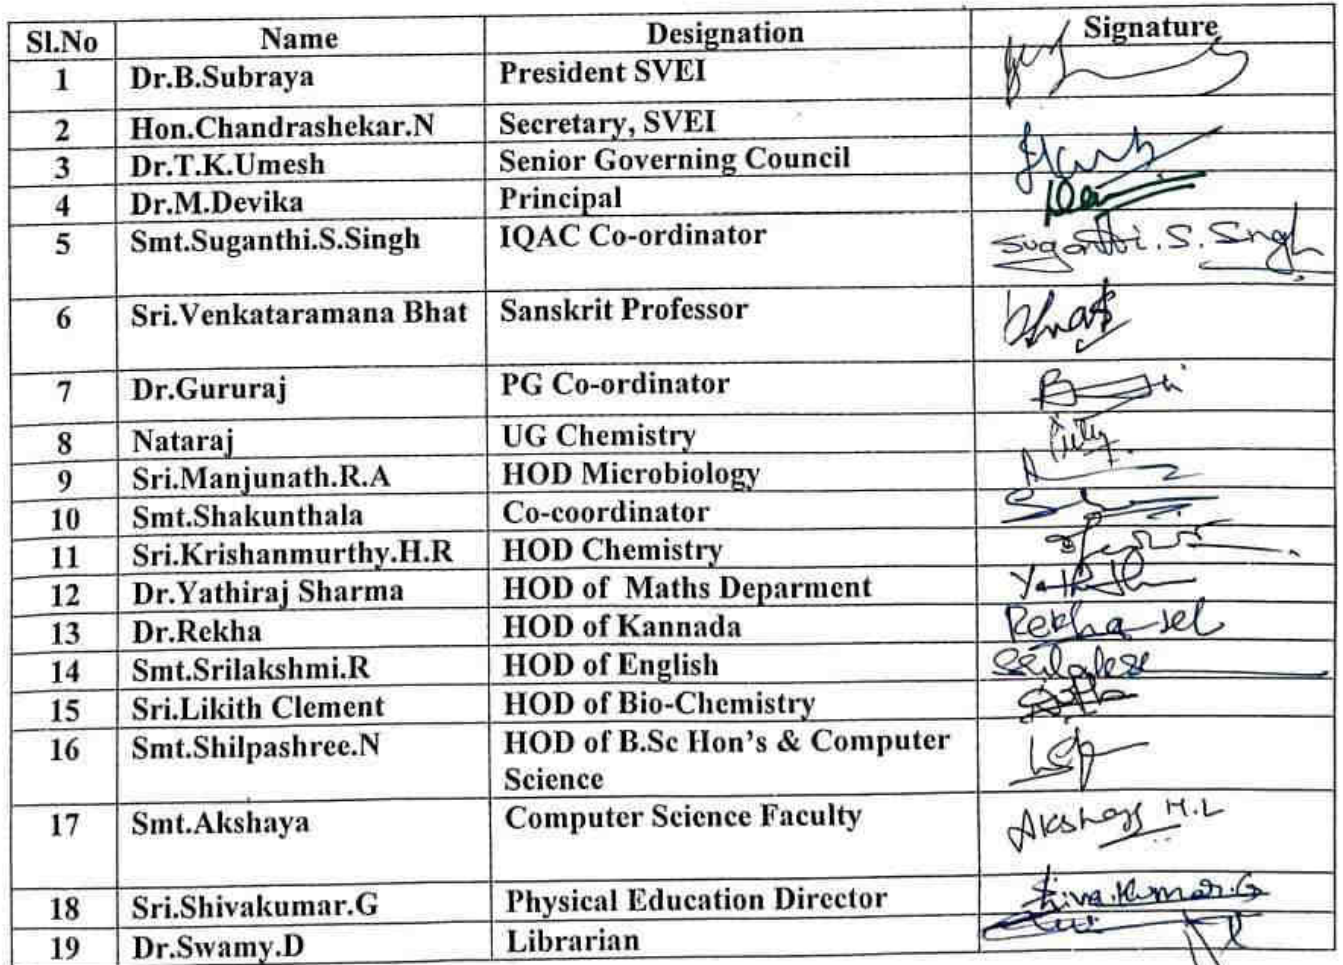 Sl.No Name Designation Signature
1 Dr.B.Subraya President SVEI
2 Hon.Chandrashekar.N Secretary, SVEI
3 Dr.T.K.Umesh Senior Governing Council
4 Dr.M.Devika Principal
5 Smt.Suganthi.S.Singh IQAC Co-ordinator Suganthi.S.Singh
6 Sri.Venkataramana Bhat Sanskrit Professor Bhat
7 Dr.Gururaj PG Co-ordinator
8 Nataraj UG Chemistry
9 Sri.Manjunath.R.A HOD Microbiology
10 Smt.Shakunthala Co-coordinator
11 Sri.Krishanmurthy.H.R HOD Chemistry
12 Dr.Yathiraj Sharma HOD of Maths Deparment
13 Dr.Rekha HOD of Kannada Rekha
14 Smt.Srilakshmi.R HOD of English
15 Sri.Likith Clement HOD of Bio-Chemistry
16 Smt.Shilpashree.N HOD of B.Sc Hon's & Computer
Science
17 Smt.Akshaya Computer Science Faculty Akshaya H.L
18 Sri.Shivakumar.G Physical Education Director Shivakumar.G
19 Dr.Swamy.D Librarian